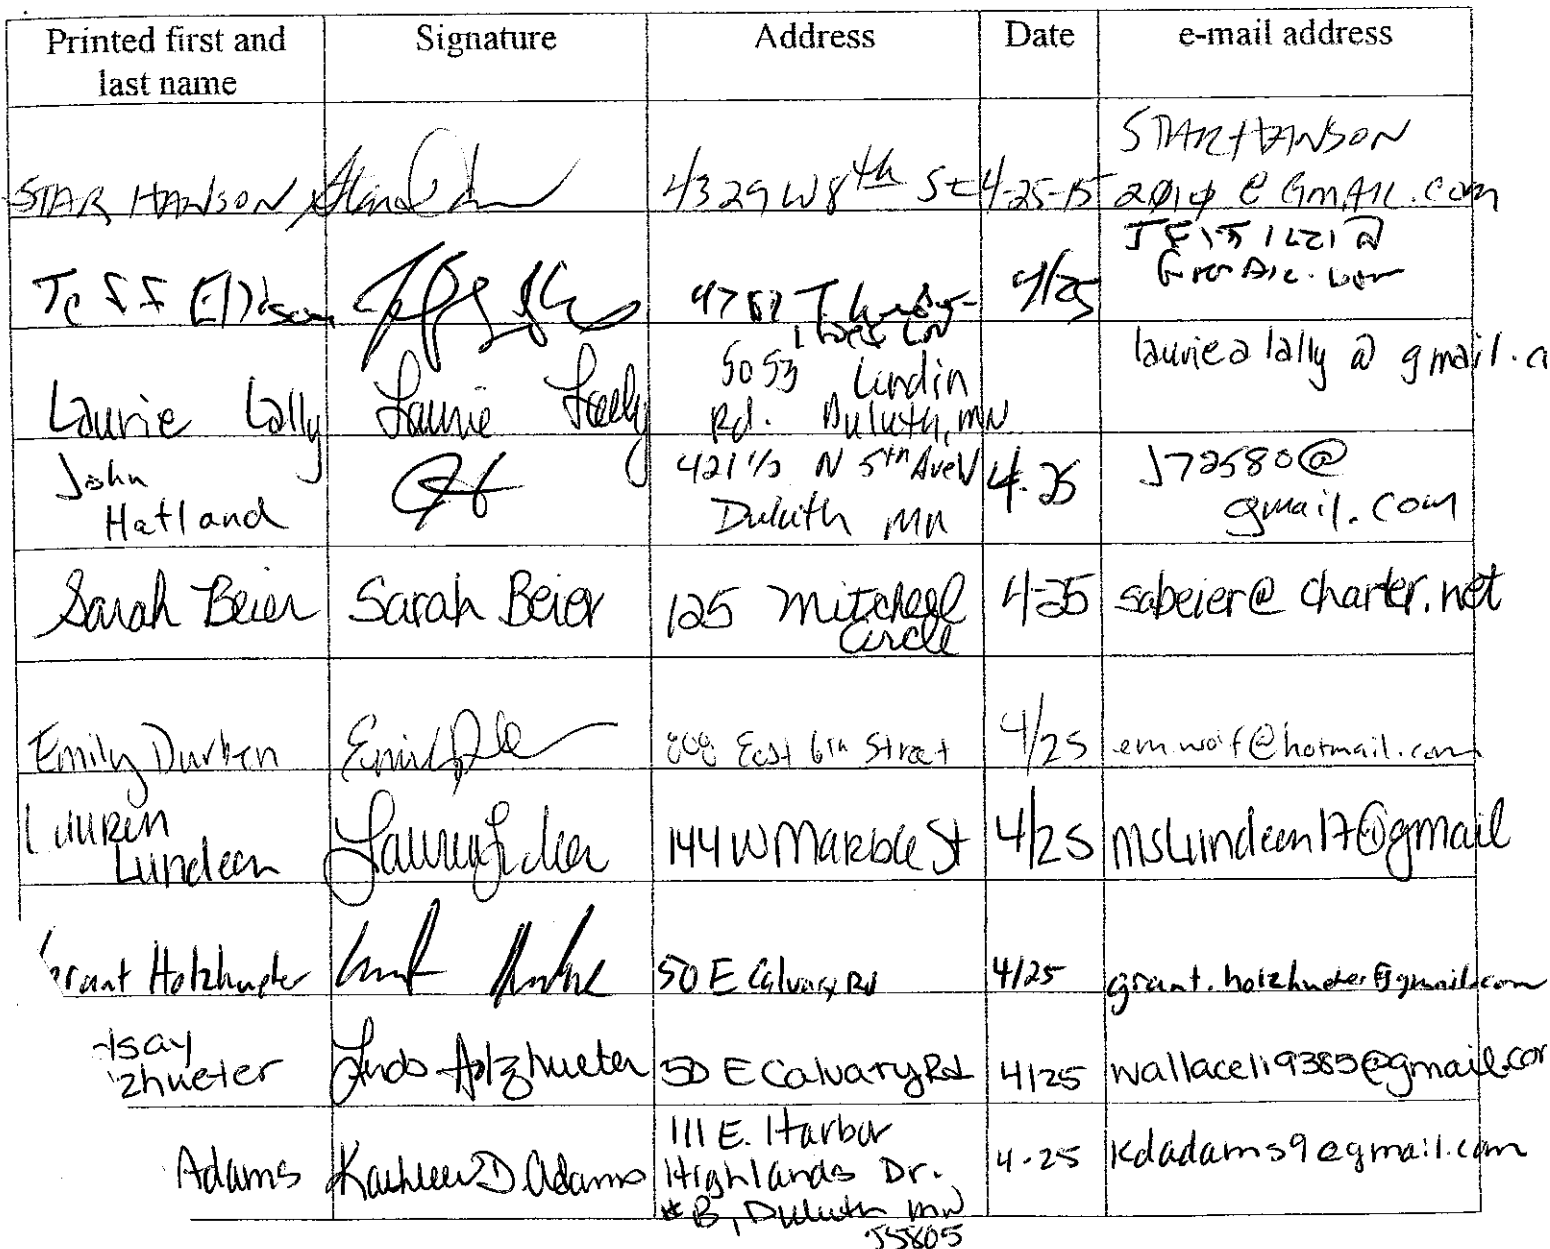 Printed first and last name Signature Address Date e-mail address
STAR HANSON 4329 W 8th St 4-25-15 STARHANSON 2014 @ GMAIL.Com
Jeff 4/25
Laurie Lally Laurie Lally 5053 Lindin Rd. Duluth, MN laurie a lally @ gmail.c
John Hatland 421 1/2 N 5th Ave W Duluth MN 4-25 J72580@ gmail.com
Sarah Beier Sarah Beier 125 Mitchell Circle 4-25 sabeier@charter.net
Emily Durben 808 East 6th Street 4/25 em.wolf@hotmail.com
Lauren Lundeen 144 W Marble St 4/25 mslundeen17@gmail
Grant Holzhueter 50 E Calvary Rd 4/25 grant.holzhueter@gmail.com
dsay zhueter Holzhueter 50 E Calvary Rd 4/25 wallaceli9385@gmail.com
Adams Kathleen D. Adams 111 E. Harbor Highlands Dr. #B, Duluth MN 55805 4-25 kdadams9@gmail.com